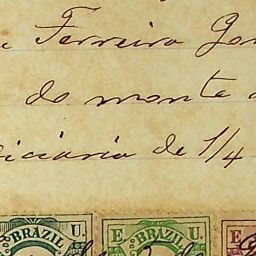 Ferreira Gon
do monte
iciaria de 1/4
BRAZIL U. E BRAZIL U. E